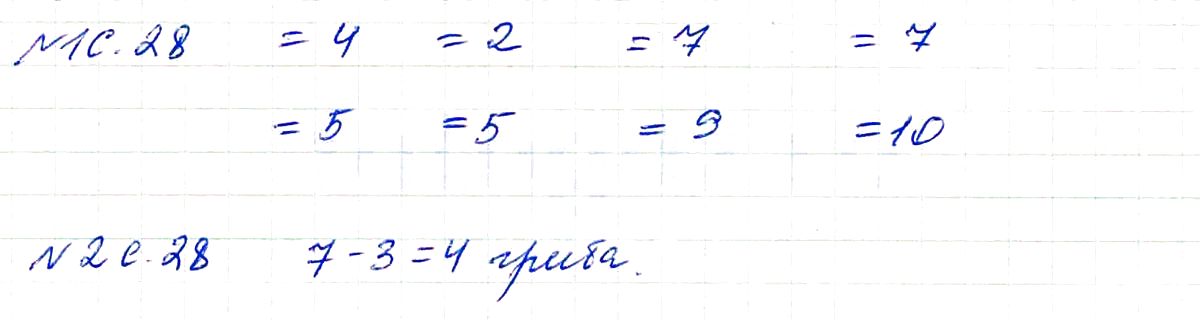 N1 с. 28 = 4 = 2 = 7 = 7
= 5 = 5 = 9 = 10
N 2 с. 28 7 - 3 = 4 гриба.